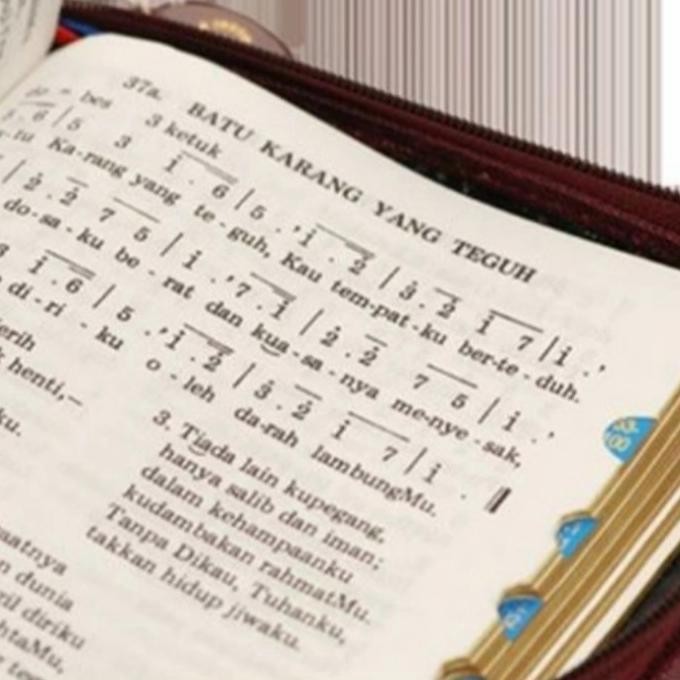 37a. BATU KARANG YANG TEGUH
do = bes 3 ketuk
5 . 6 | 5 3 i . 6 | 5 . ' i . 2 | 3 . 2 i 7 | i . '
tu Ka-rang yang te-guh, Kau tem-pat-ku ber-te-duh.
| 2 . 2 7 5 | i . ' 7 . i | 2 . 2 7 5 | i . '
do-sa-ku be-rat dan kua-sa-nya me-nye-sak,
3 i . 6 | 5 . ' i . 2 | 3 . 2 i 7 | i .
di-ri-ku o-leh da-rah lambungMu.
henti,–
ku.
3. Tiada lain kupegang,
hanya salib dan iman;
dalam kehampaanku
kudambakan rahmatMu.
Tanpa Dikau, Tuhanku,
takkan hidup jiwaku.
dunia
diriku